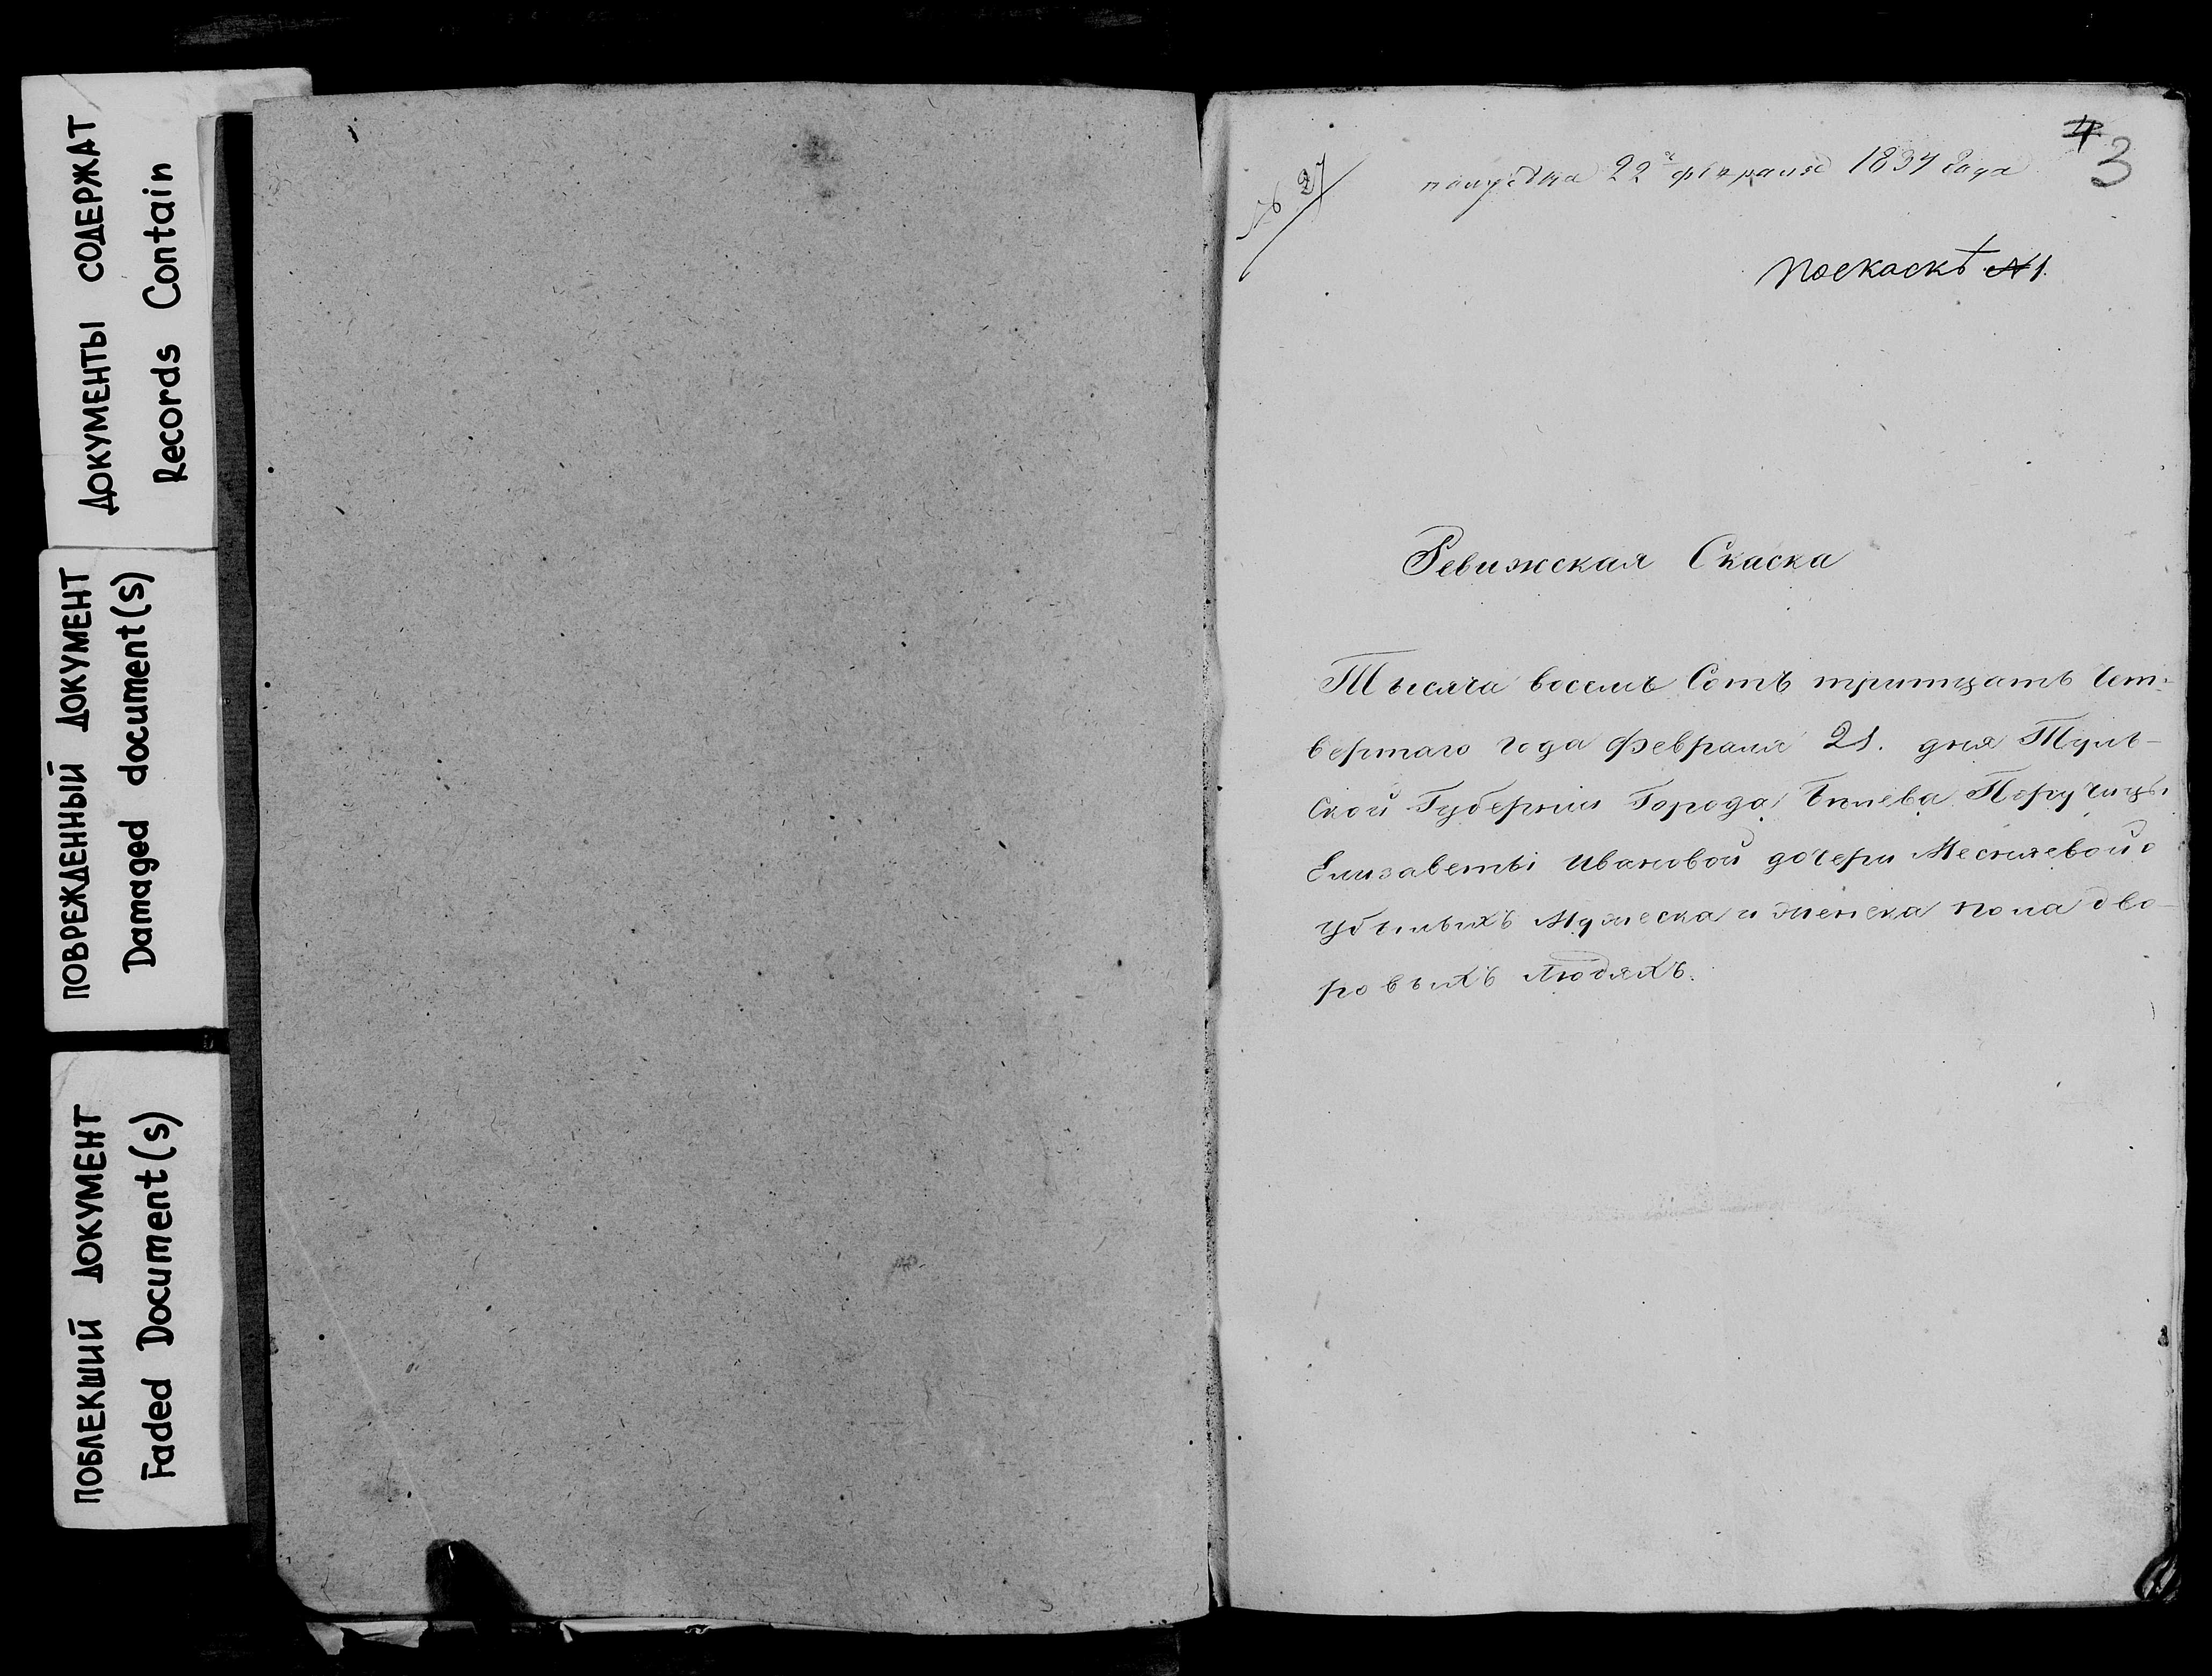 ДОКУМЕНТЫ СОДЕРЖАТ
Records Contain
ПОВРЕЖДЕННЫЙ ДОКУМЕНТ
Damaged document(s)
ПОБЛЕКШИЙ ДОКУМЕНТ
Faded Document(s)
3
№ 27
22 февраля 1834 года
поскаскѣ №1.
Ревижская Скаска
Тысяча восемь Сотъ тритцать Чет-
вертаго года февраля 21. дня Туль-
ской Губерніи Города Бѣлева Поручицы
Елизаветы Ивановой дочери о
Мужеска и женска пола дво-
ровыхъ людяхъ.